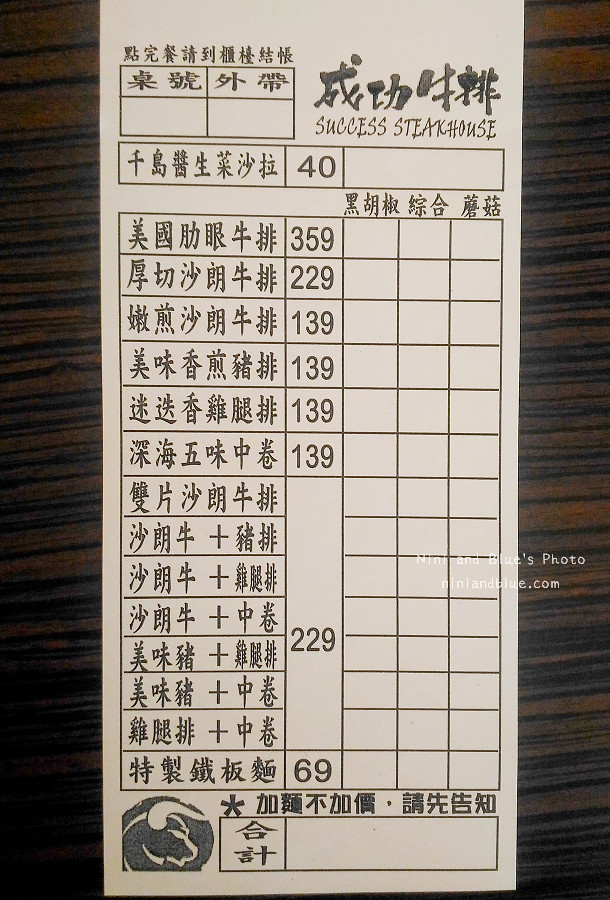 點完餐請到櫃檯結帳
桌號 外帶
成功牛排
SUCCESS STEAKHOUSE
千島醬生菜沙拉 40
黑胡椒 綜合 蘑菇
美國肋眼牛排 359
厚切沙朗牛排 229
嫩煎沙朗牛排 139
美味香煎豬排 139
迷迭香雞腿排 139
深海五味中卷 139
雙片沙朗牛排
沙朗牛+豬排
沙朗牛+雞腿排
沙朗牛+中卷
229
美味豬+雞腿排
美味豬+中卷
雞腿排+中卷
特製鐵板麵 69
★ 加麵不加價,請先告知
合計
Nini and Blue's Photo
niniandblue.com